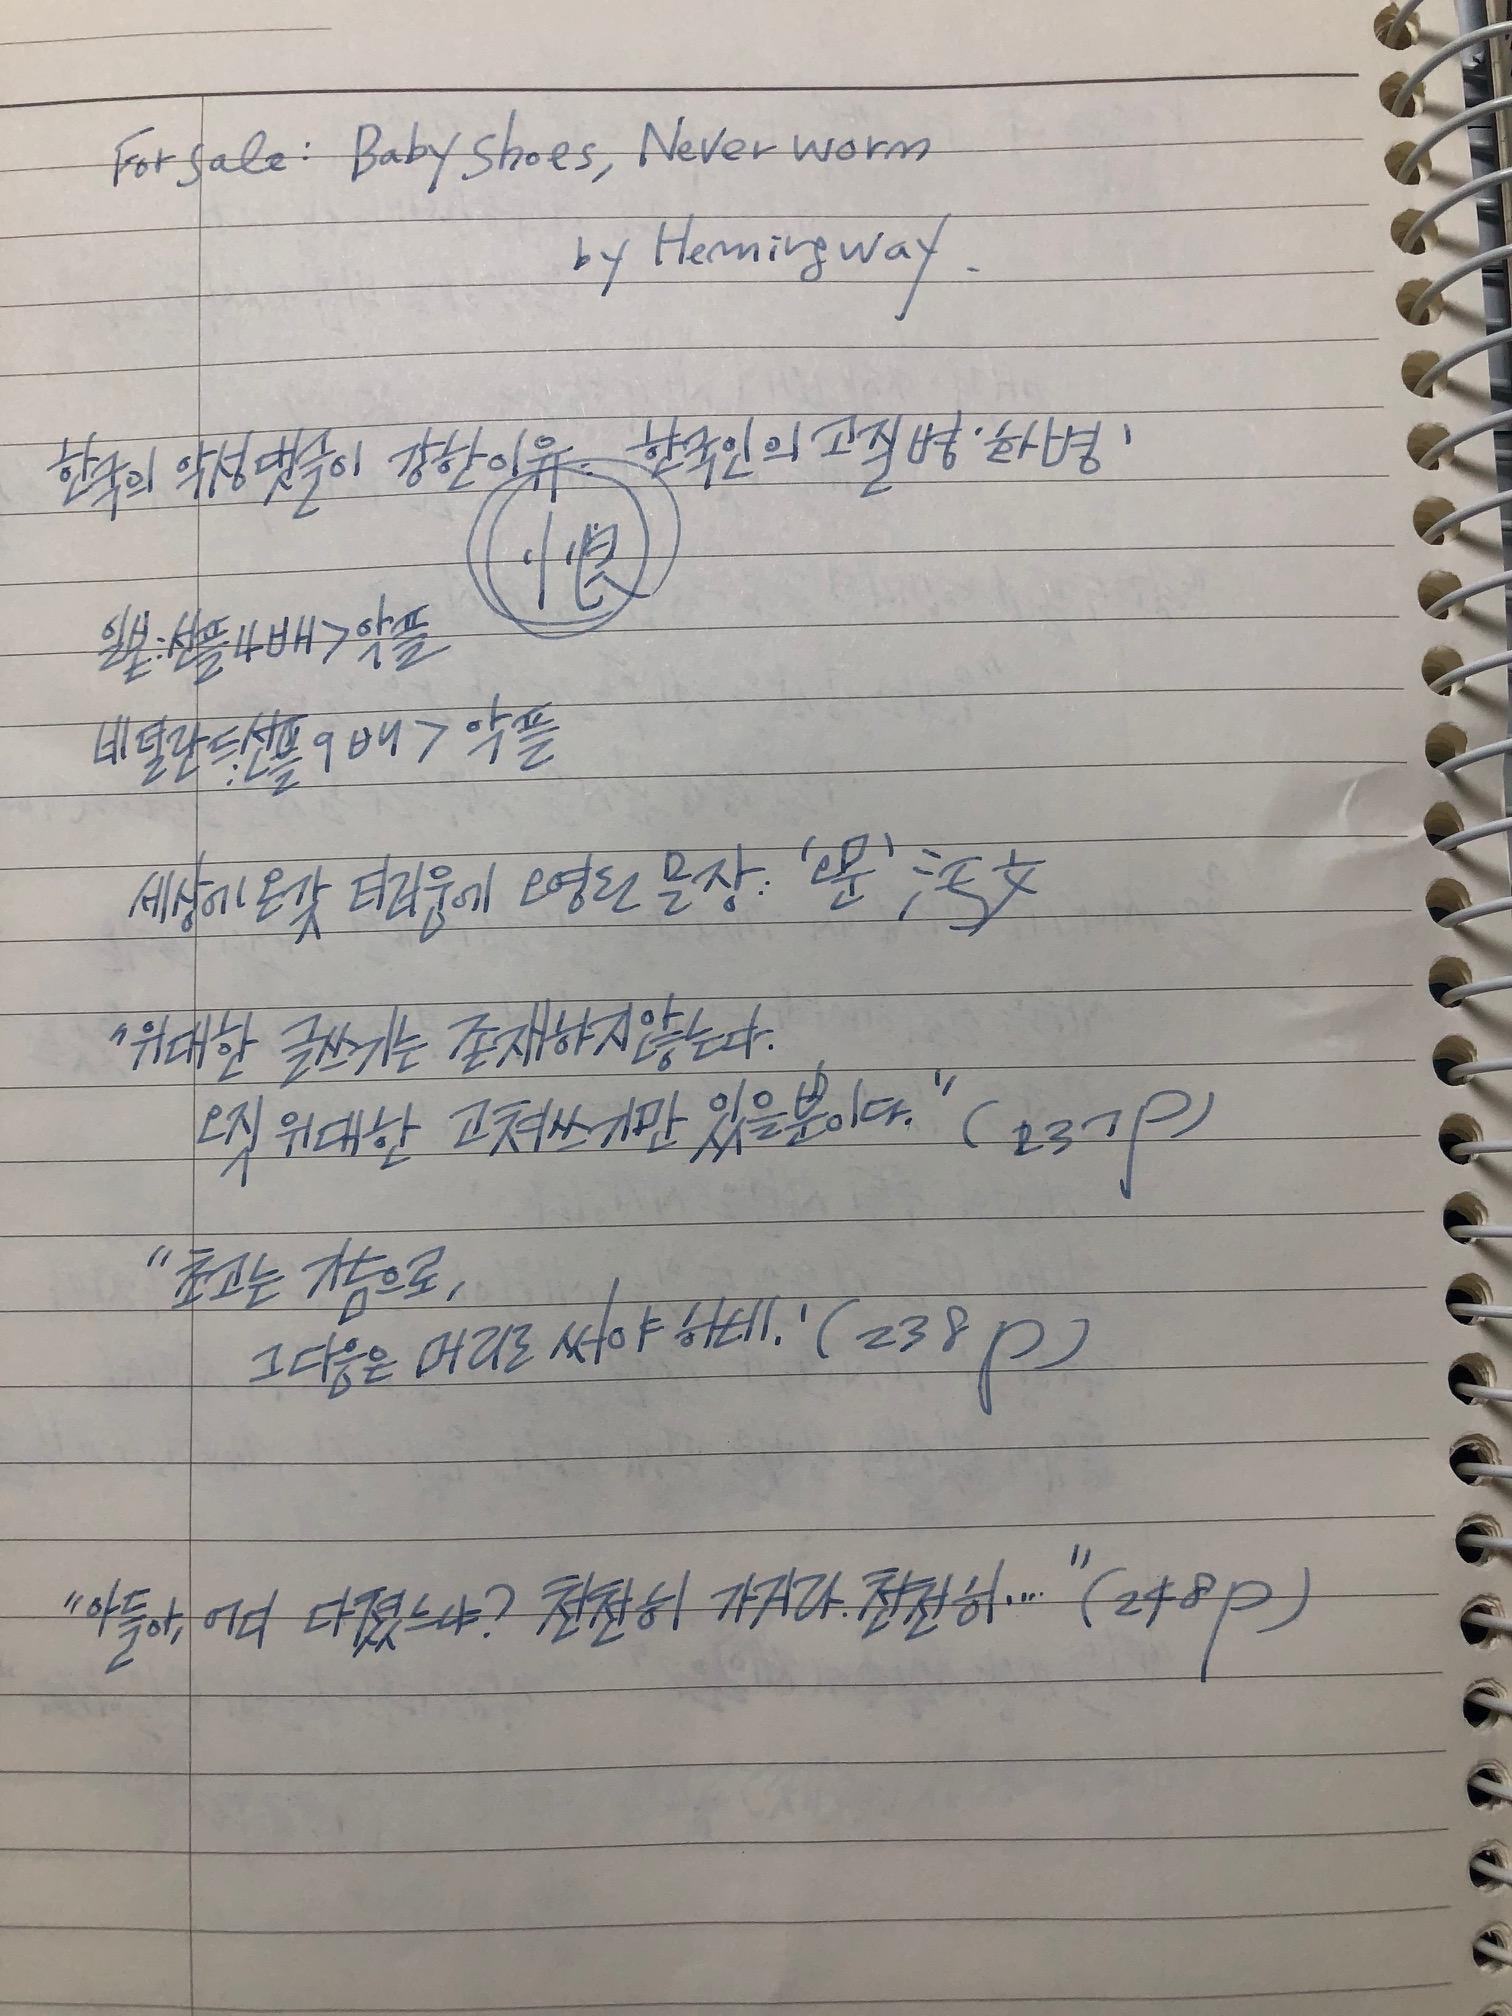 For sale: Baby shoes, Never worm
by Hemingway.
한국의 악성댓글이 강한이유. 한국인의 고질병 '화병'
恨
일본:선플4배>악플
네덜란드:선플9배>악플
세상에 온갖 더러움에 오영된 문장: '오문' 汚文
"위대한 글쓰기는 존재하지않는다.
오직 위대한 고쳐쓰기만 있을뿐이다." (237p)
"초고는 가슴으로,
그다음은 머리로 써야 하네.' (238p)
"아들아, 어디 다쳤느냐? 찬찬히 가거라. 찬찬히…" (248p)